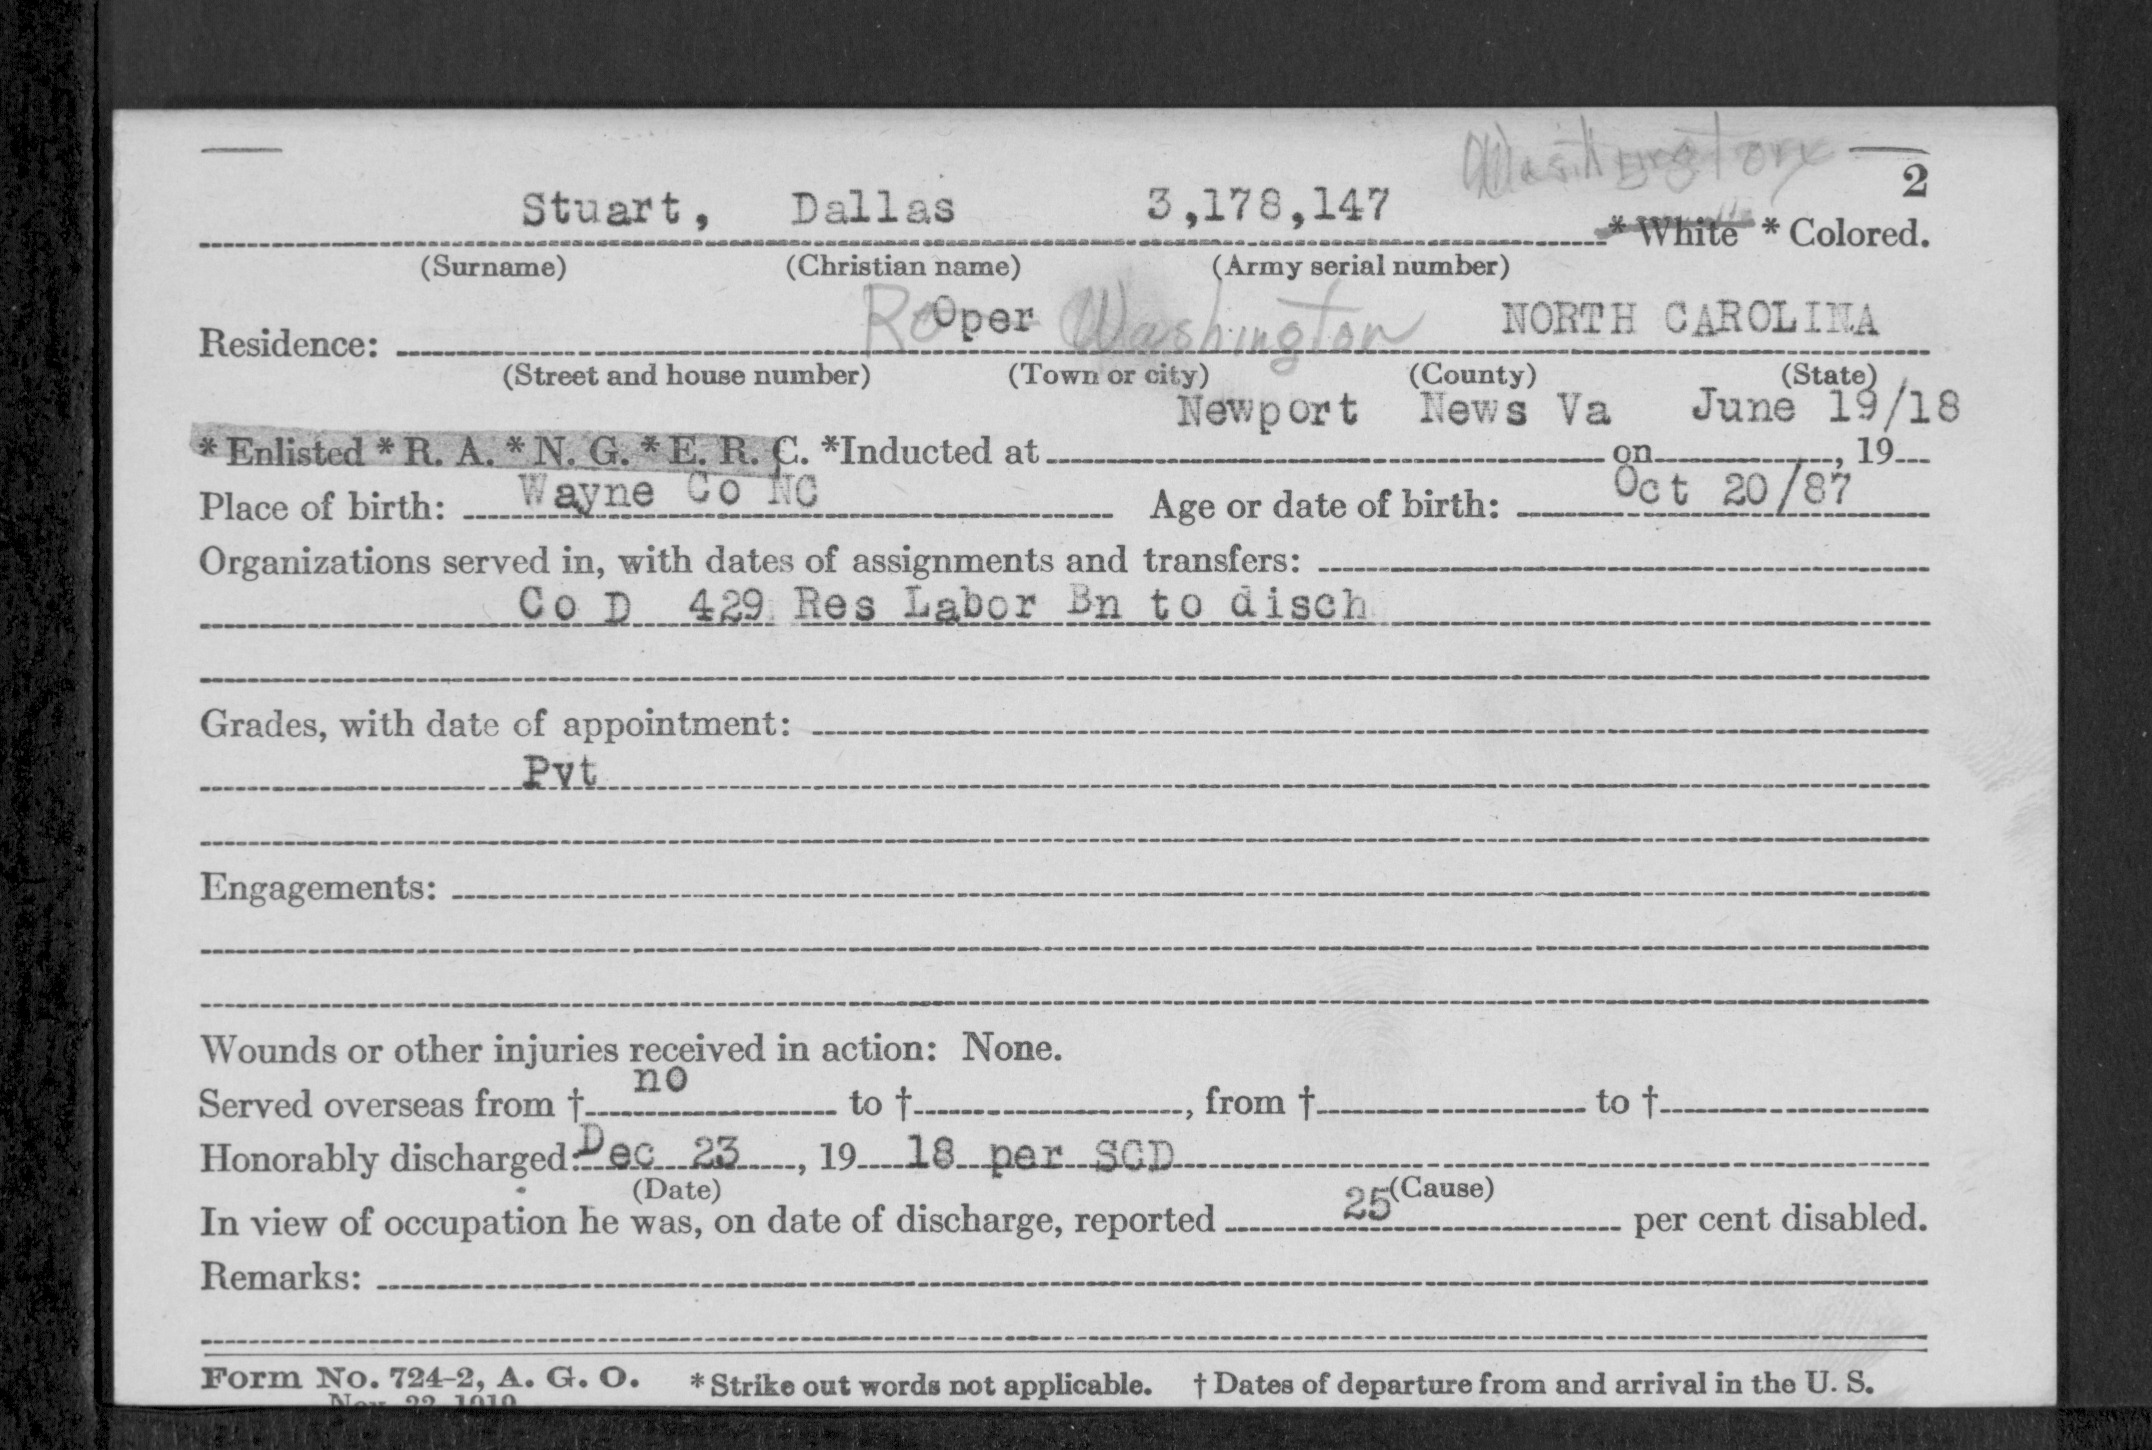 Washington
2
Stuart, Dallas 3,178,147 * White * Colored.
(Surname) (Christian name) (Army serial number)
Residence: Roper Washington NORTH CAROLINA
(Street and house number) (Town or city) (County) (State)
* Enlisted * R. A. * N. G. * E. R. C. *Inducted at Newport News Va on June 19/18, 19
Place of birth: Wayne Co NC Age or date of birth: Oct 20/87
Organizations served in, with dates of assignments and transfers:
Co D 429 Res Labor Bn to disch
Grades, with date of appointment:
Pvt
Engagements:
Wounds or other injuries received in action: None.
Served overseas from † no to †, from † to †
Honorably discharged: Dec 23, 19 18 per SCD
(Date) (Cause)
In view of occupation he was, on date of discharge, reported 25 per cent disabled.
Remarks:
Form No. 724-2, A. G. O. * Strike out words not applicable. † Dates of departure from and arrival in the U. S.
Nov. 22, 1919